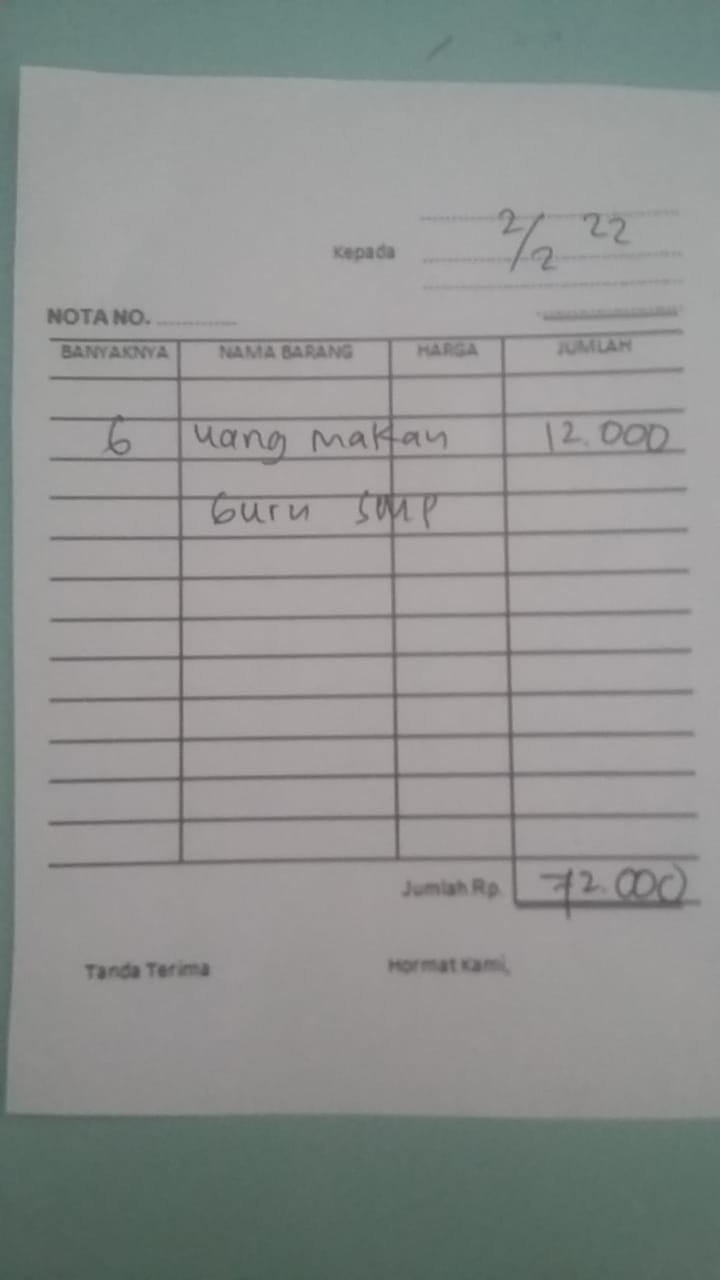 Kepada
2/2 22
NOTA NO. ............
BANYAKNYA NAMA BARANG HARGA JUMLAH
6 uang makan 12.000
Guru SMP
Jumlah Rp. 72.000
Tanda Terima Hormat Kami,